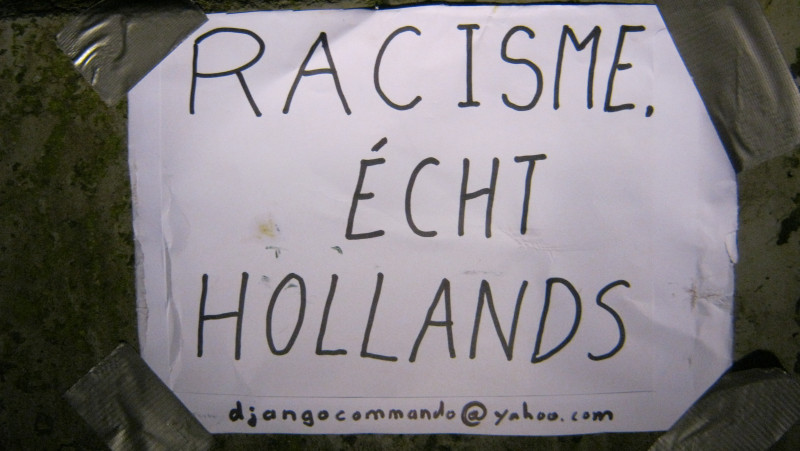 RACISME.
ÉCHT
HOLLANDS
djangocommando@yahoo.com